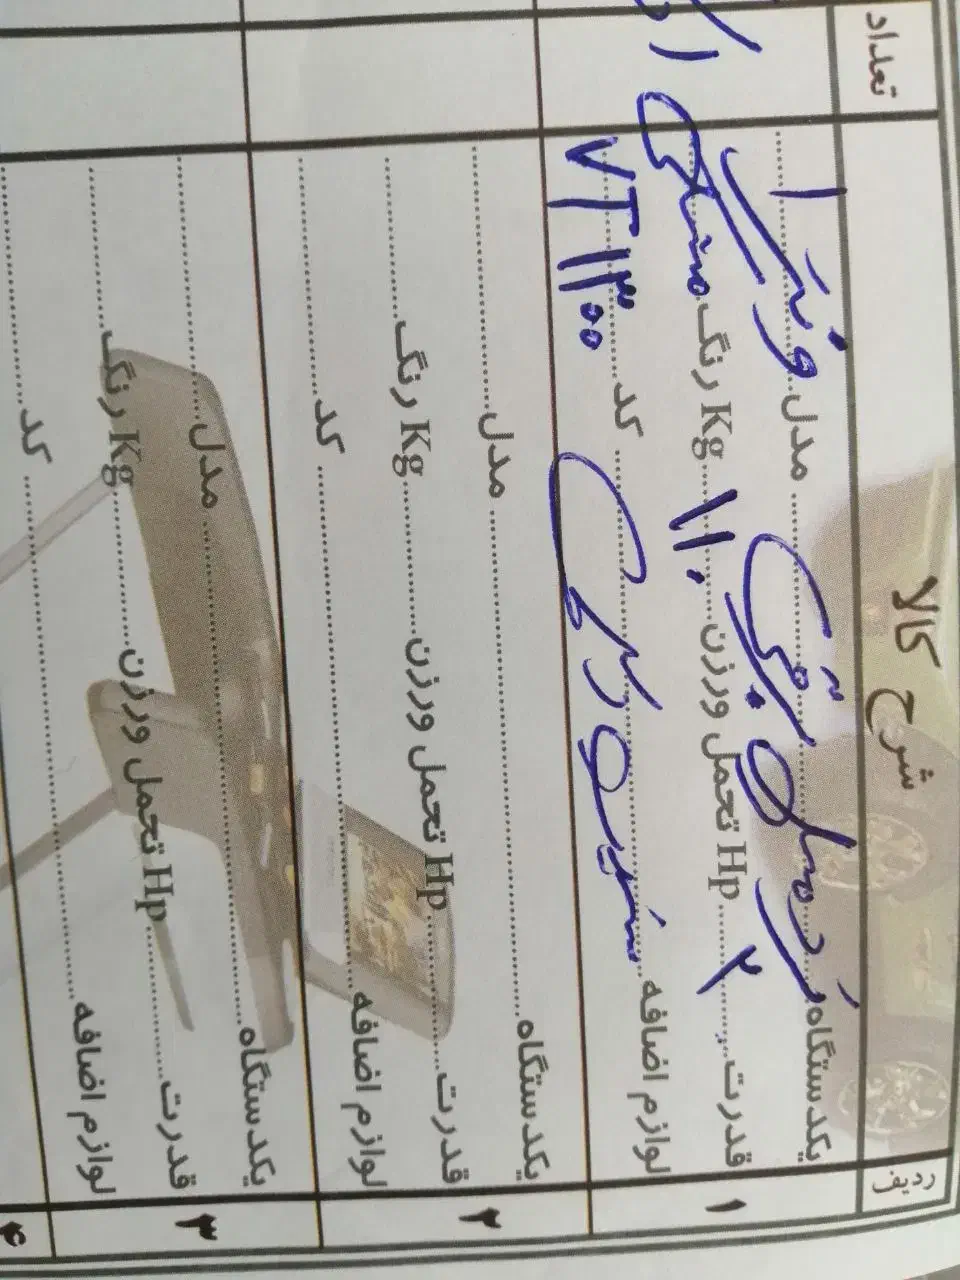 ردیف شرح کالا تعداد
۱ یکدستگاه تردمیل برقی مدل ونترا ۱
قدرت ۲ Hp تحمل ورزن ۱۱۰ Kg رنگ مشکی
لوازم اضافه کد VT ۱۳۰۰
۲ یکدستگاه مدل
قدرت Hp تحمل ورزن Kg رنگ
لوازم اضافه کد
۳ یکدستگاه مدل
قدرت Hp تحمل ورزن Kg رنگ
لوازم اضافه کد
۴